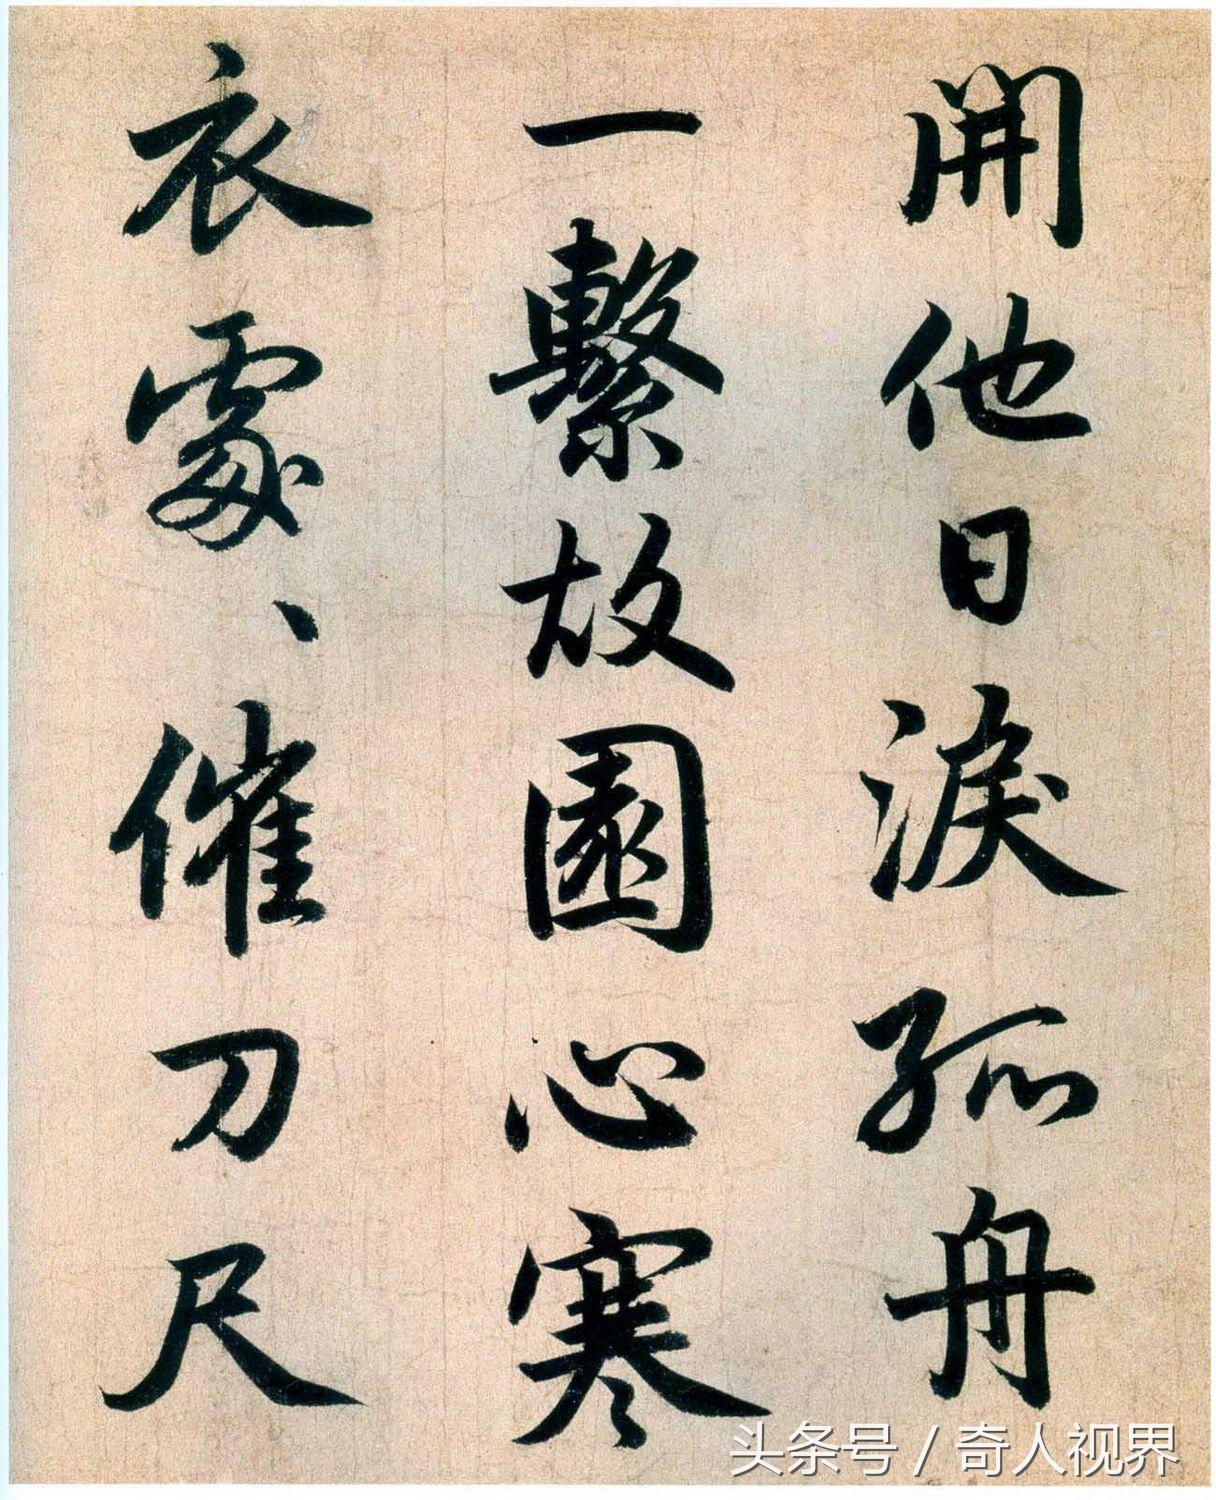 開他日淚孤舟
一繫故園心寒
衣處、催刀尺
头条号 / 奇人视界